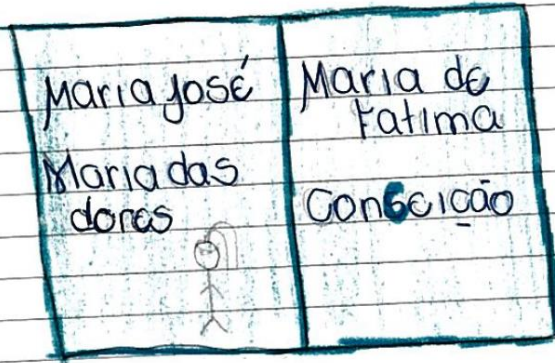 Maria José
Maria das
dores
Maria de
Fatima
Conceição